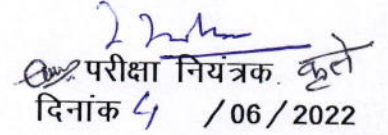 परीक्षा नियंत्रक कृते
दिनांक 4 /06/2022